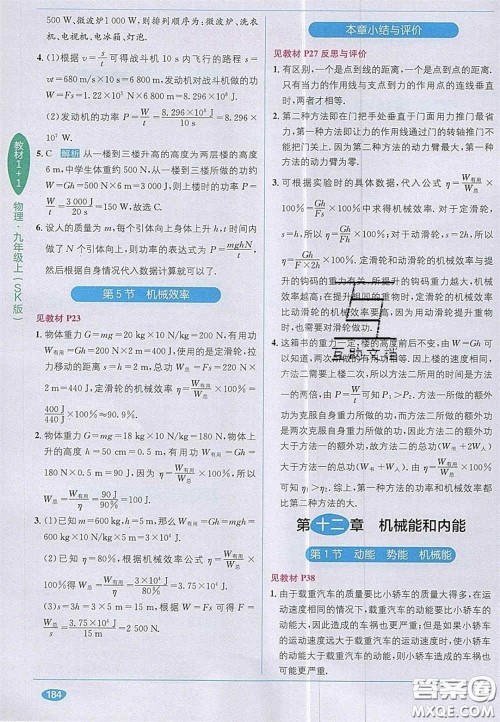 500 W、微波炉1 000 W，则排列顺序为：微波炉、洗衣
机、电视机、电冰箱、灯泡.
4. (1)根据 v=s/t 可得战斗机 10 s 内飞行的路程 s=
vt=680 m/s×10 s=6 800 m；发动机对战斗机做的功
W=Fs=1.22×10⁵ N×6 800 m=8.296×10⁸ J.
(2)发动机的功率 P=W/t=8.296×10⁸ J/10 s=8.296×
10⁷ W.
5. C 解析 从一楼到三楼升高的高度为两层楼的高度
6 m，中学生体重约 500 N，从一楼到三楼克服重力做的功
W=Gh=500 N×6 m=3 000 J，则上楼时的功率约 P=
W/t=3 000 J/20 s=150 W，故选 C.
6. 设人的质量为 m，每个引体向上身体上升 h，时间 t 内
做了 N 个引体向上，则功率的表达式为 P=mghN/t，
然后根据自身情况代入数据计算就可以了.
第 5 节 机械效率
见教材 P23
1. 物体重力 G=mg=20 kg×10 N/kg=200 N，有用功
W有用=Gh=200 N×2 m=400 J，使用的是定滑轮，拉
力移动的距离 s=h=2 m，总功 W总=Fs=220 N×2 m=
440 J，定滑轮的机械效率 η=W有用/W总×100%=
400 J/440 J×100%≈90.9%.
2. 物体重力 G=mg=18 kg×10 N/kg=180 N，物体上
升的高度 h=50 cm=0.5 m，有用功 W有用=Gh=
180 N×0.5 m=90 J，机械效率 η=W有用/W总=90 J/100 J×
100%=90%.
3. (1)已知 m=600 kg，h=5 m，W有用=Gh=3×10⁴ J.
(2)已知 η=80%，根据机械效率公式 η=W有用/W总×
100%，得到 W总=W有用/η=3×10⁴ J/80%=3.75×10⁴ J.
(3)s=3h=3×5 m=15 m，根据 W=Fs 可得 F=
W总/s=3.75×10⁴ J/15 m=2 500 N.
教材1+1
物理·九年级上(SK版)
184
本章小结与评价
见教材 P27 反思与评价
1. 有区别，一个是点到线的距离，一个是点到点的距离.
只有当力的作用线与支点到力的作用点的连线垂直
时，两者才相等.
2. 第二种方法即在门把手处垂直于门面用力推门最省
力，第一种方法即让力的作用线通过门的转轴推门不
能把门关上.因为第二种方法动力臂最大，第一种方
法动力臂为零.
3. 可根据实验时的具体数据，代入公式 η=W有用/W总×
100%=Gh/Fs×100%求得机械效率.对于定滑轮，s=h，
η=G/F×100%；对于动滑轮，s=2h，η=G/2F×100%.
提升的钩码的重力有关系，所提升的钩码重力越大，则
滑轮的机械效率越高，因为克服绳重和摩擦及动滑轮
重做的功基本不变，当所提升的钩码越重，有用功占总
功的比例越大，则机械效率越高.影响滑轮组的机械效
率的因素主要有钩码重、绳重和摩擦及动滑轮重等.
4. 这箱书的重力一定，楼的高度前后不变，由 W=Gh
可知，两种方法所做的有用功相等.因为方法二需要上
楼两次，所以所用的时间可能要比方法一的时间长一些，
由 P=W/t 可知，P₁可能大于 P₂.由于方法一的额外
功为克服自身重力所做的功，而方法二所做的额外功
是两次克服自身重力所做的功，所以方法二的额外功
大于方法一的额外功，故方法二的总功(W书+2W人)
大于方法一的总功(W书+W人).由 η=W有用/W总×
100%可知，η₁>η₂.综上，第一种方法的功率和效率都
比第二种方法的大.
第十二章 机械能和内能
第 1 节 动能 势能 机械能
见教材 P38
1. 由于载重汽车的质量要比小轿车的质量大得多，在运
动速度相同的情况下，载重汽车的动能要比小轿车的
动能大，因此造成的车祸也更严重；但是如果小轿车
的运动速度远大于载重汽车的运动速度时，小轿车的
动能就会大于载重汽车的动能，所以小轿车造成的车
祸也可能会更严重.
答案圈
MXQE.COM